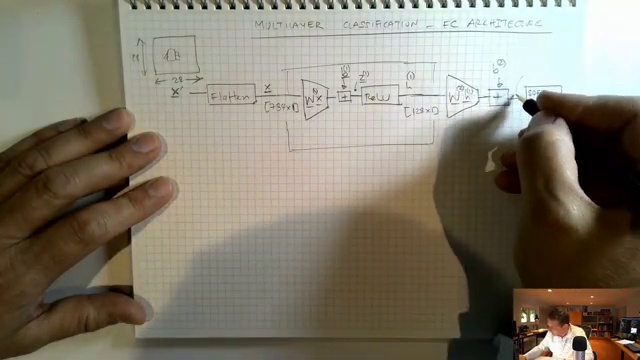 MULTILAYER CLASSIFICATION - FC ARCHITECTURE
28
28
x' Flatten x [784x1] W⁽¹⁾x b⁽¹⁾ + z⁽¹⁾ ReLU h⁽¹⁾ [128x1] W⁽²⁾h⁽¹⁾ b⁽²⁾ +